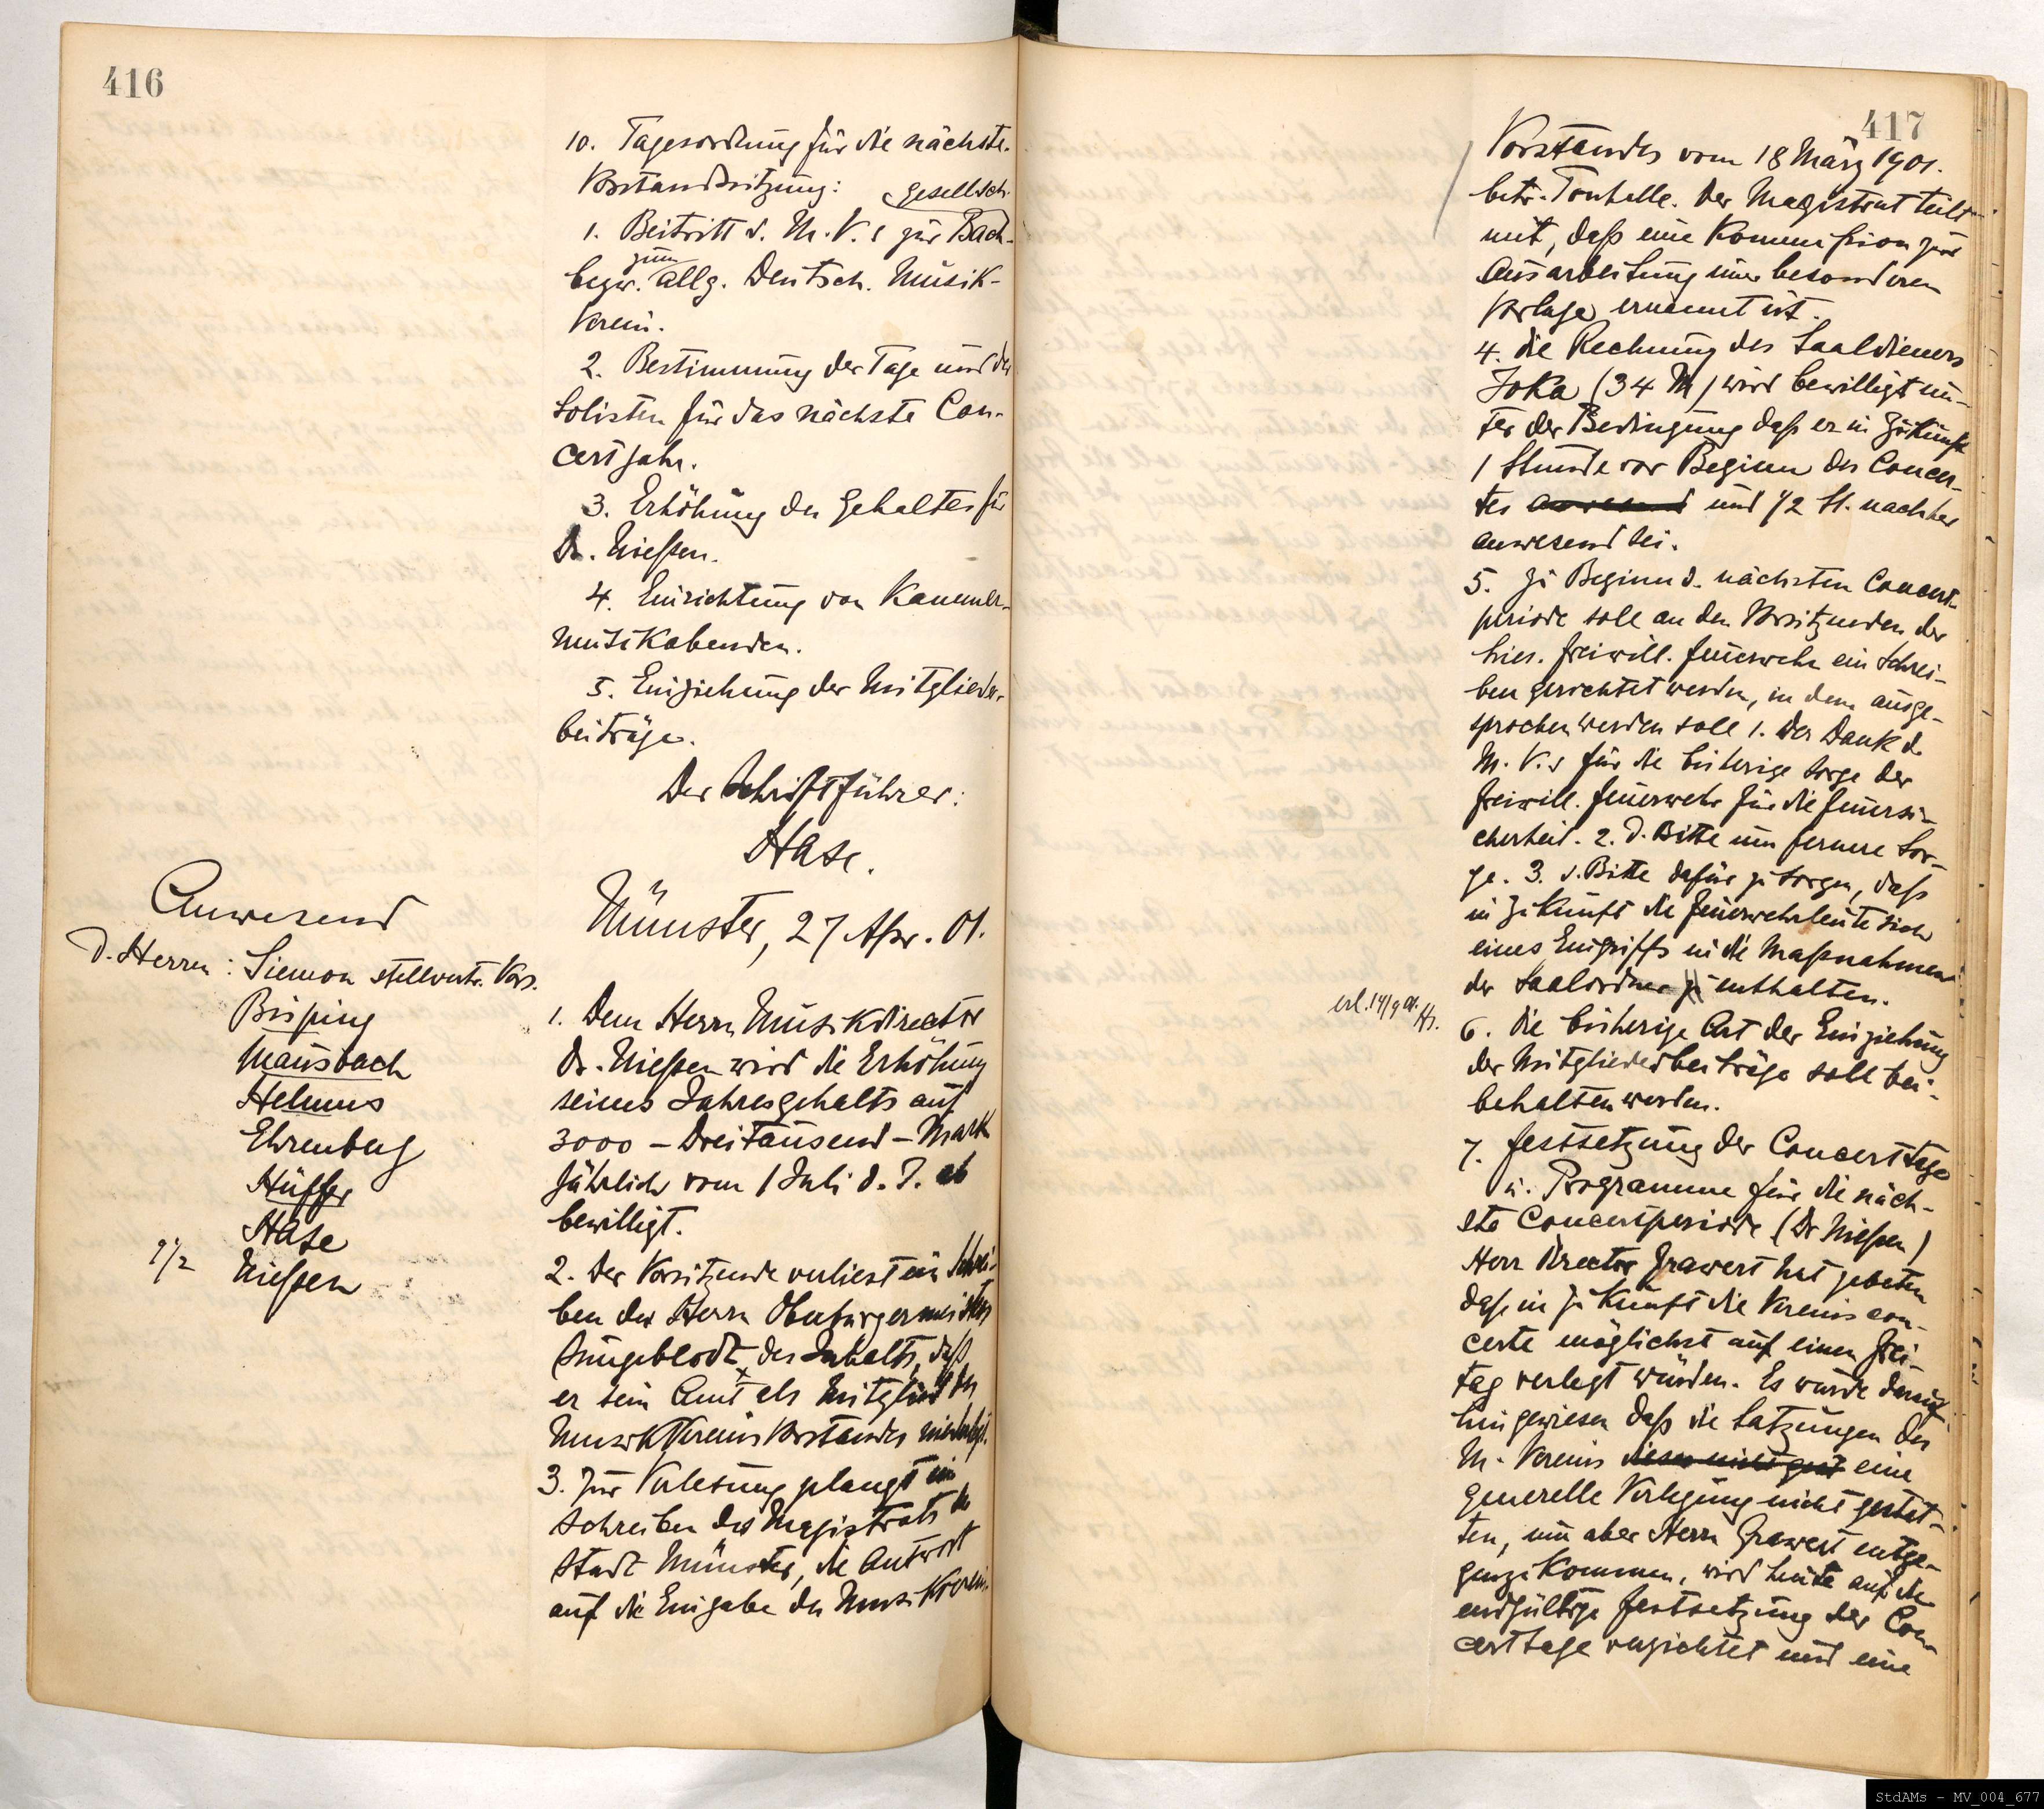 416
10. Tagesordnung für die nächste
Vorstandssitzung:
gesellsch.
1. Beitritt d. M. V.s zur Bach-
zum
bezw. allg. Deutsch. Musik-
Verein.
2. Bestimmung der Tage und der
Solisten für das nächste Con-
certjahr.
3. Erhöhung des Gehaltes für
Dr. Nießen.
4. Einrichtung von Kammer-
musikabenden.
5. Einziehung der Mitglieder-
beiträge.
Der Schriftführer:
Hase.
Anwesend
d. Herren: Siemon stellvertr. Vors.
Bisping
Mausbach
Helmus
Ehrenberg
Hüffer
Hase
9 1/2 Nießen
Münster, 27 Apr. 01.
1. Dem Herrn Musikdirector
Dr. Nießen wird die Erhöhung
seines Jahresgehalts auf
3000 – Dreitausend – Mark
jährlich vom 1 Juli d. J. ab
bewilligt.
2. Der Vorsitzende verliest ein Schrei-
ben des Herrn Oberbürgermeisters
Jungeblodt, des Inhalts, daß
er sein Amt als Mitglied des
Musikvereins Vorstandes niederlegt.
3. Zur Verlesung gelangt ein
Schreiben des Magistrats der
Stadt Münster, die Antwort
auf die Eingabe des Musikverein-
417
Vorstandes vom 18 März 1901.
betr. Tonhalle. Der Magistrat teilt
mit, daß eine Kommission zur
Ausarbeitung einer besonderen
Vorlage ernannt ist.
4. Die Rechnung des Saaldieners
Joka (34 M) wird bewilligt un-
ter der Bedingung daß er in Zukunft
1 Stunde vor Beginn des Concer-
tes anwesend und 1/2 St. nachher
anwesend sei.
5. Zu Beginn d. nächsten Concert-
periode soll an den Vorsitzenden der
hies. freiwill. Feuerwehr ein Schrei-
ben gerichtet werden, in dem ausge-
sprochen werden soll 1. Der Dank d.
M. V.s für die bisherige Sorge der
freiwill. Feuerwehr für die Feuersi-
cherheit. 2. d. Bitte um fernere Sor-
ge. 3. d. Bitte dafür zu sorgen, daß
in Zukunft die Feuerwehrleute sich
eines Eingriffs in die Maßnahmen
der Saalordner zu enthalten.
erl. 14/9 01. Hs.
6. Die bisherige Art der Einziehung
der Mitgliederbeiträge soll bei-
behalten werden.
7. Festsetzung der Concerttage
u. Programme für die näch-
ste Concertperiode (Dr Nießen)
Herr Director Grawert hat gebeten
daß in Zukunft die Vereinscon-
certe möglichst auf einen Frei-
tag verlegt würden. Es wurde darauf
hingewiesen daß die Satzungen des
M. Vereins eine
generelle Verlegung nicht gestat-
ten, um aber Herrn Grawert entge-
genzukommen, wird heute auf die
endgültige Festsetzung der Con-
certtage verzichtet und eine
StdAMs - MV_004_677